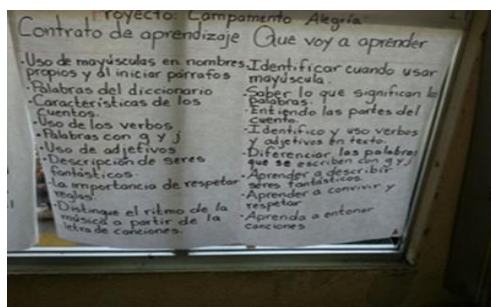 Proyecto: Campamento Alegría
Contrato de aprendizaje Que voy a aprender
·Uso de mayúsculas en nombres
propios y al iniciar párrafos
·Palabras del diccionario
·Características de los
cuentos.
·Uso de los verbos
·Palabras con g y j
·Uso de adjetivos
·Descripción de seres
fantásticos.
·La importancia de respetar
reglas.
·Distingue el ritmo de la
música a partir de la
letra de canciones.
·Identificar cuando usar
mayúscula.
·Saber lo que significan la
palabras.
·Entiendo las partes del
cuento.
·Identifico y uso verbos
y adjetivos en texto.
·Diferenciar las palabras
que se escriben con g y j
·Aprender a describir
seres fantásticos.
·Aprender a convivir y
respetar
·Aprenda a entonar
canciones